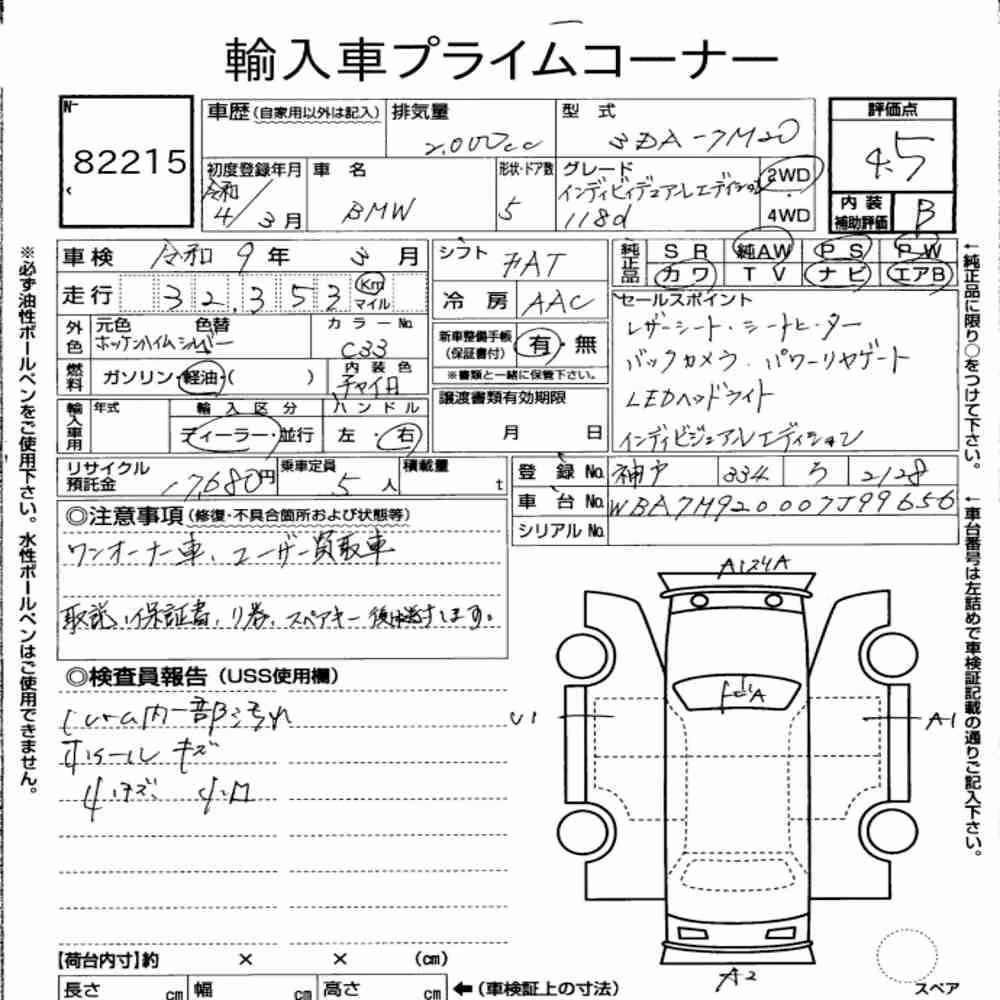 輸入車プライムコーナー
No
82215
車歴(自家用以外は記入)
排気量
2.000cc
型 式
3DA-7M20
評価点
4.5
初度登録年月
令和4/3月
車 名
BMW
形状・ドア数
5
グレード
インディビィデュアルエディション
118d
2WD
4WD
内装補助評価
B
車検 令和 9年 3月
シフト
FAT
純正品
SR 純AW PS PW
カワ TV ナビ エアB
走行 32,353 Km マイル
冷房 AAC
セールスポイント
レザーシート・シートヒーター
バックカメラ・パワーリヤゲート
LEDヘッドライト
インディビジュアルエディション
外色
元色 色替
ホッケンハイムシルバー
カラーNo.
C33
新車整備手帳(保証書付)
有・無
※書類と一緒に保管下さい。
燃料
ガソリン・軽油・( )
内装色
チャイロ
譲渡書類有効期限
月 日
輸入車用
年式
輸入区分
ディーラー・並行
ハンドル
左・右
リサイクル預託金
17,680円
乗車定員
5人
積載量
t
登録No. 神戸 334 ろ 2128
車台No. WBA7M920007J99656
シリアルNo.
◎注意事項(修復・不具合箇所および状態等)
ワンオーナー車、ユーザー買取車
取説、保証書、リ券、スペアキー後日送付します。
◎検査員報告(USS使用欄)
内一部汚れ
ホイールキズ
小キズ 小凹
A1
U1
A1
A2
【荷台内寸】約 × × (cm)
長さ cm 幅 cm 高さ cm ←(車検証上の寸法)
スペア
※必ず油性ボールペンをご使用下さい。水性ボールペンはご使用できません。
←純正品に限り○をつけて下さい。
←車台番号は左詰めで車検証記載の通りご記入下さい。